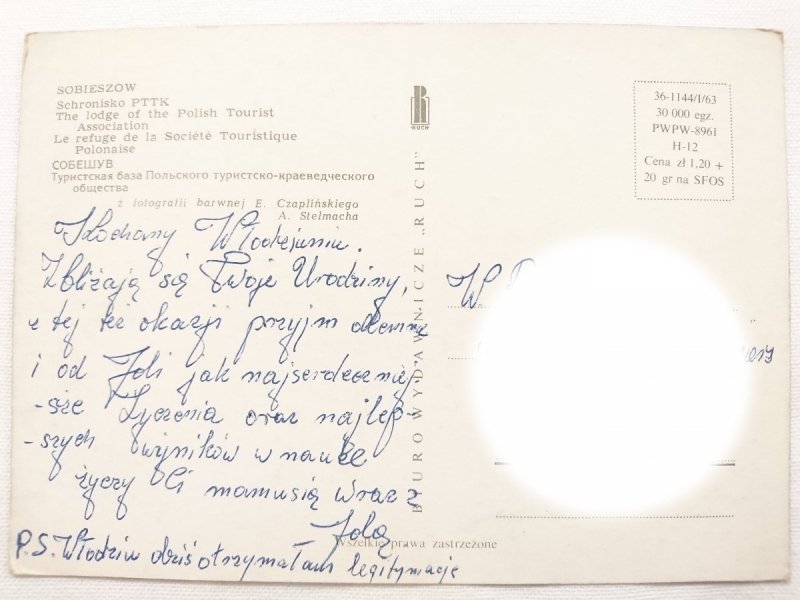 SOBIESZÓW
Schronisko PTTK
The lodge of the Polish Tourist
Association
Le refuge de la Société Touristique
Polonaise
СОБЕШУВ
Туристская база Польского туристско-краеведческого
общества
z fotografii barwnej E. Czaplińskiego
A. Stelmacha
RUCH
BIURO WYDAWNICZE „RUCH"
36-1144/I/63
30 000 egz.
PWPW-8961
H-12
Cena zł 1,20 +
20 gr na SFOS
Kochany Włodziuniu.
Zbliżają się Twoje Urodziny,
z tej też okazji przyjm odemnie
i od Joli jak najserdeczniej-
-sze Życzenia oraz najlep-
-szych wyników w nauce
życzy Ci mamusią wraz z
Jolą
P.S. Włodziu dziś otrzymałam legitymacje
W
Wszelkie prawa zastrzeżone